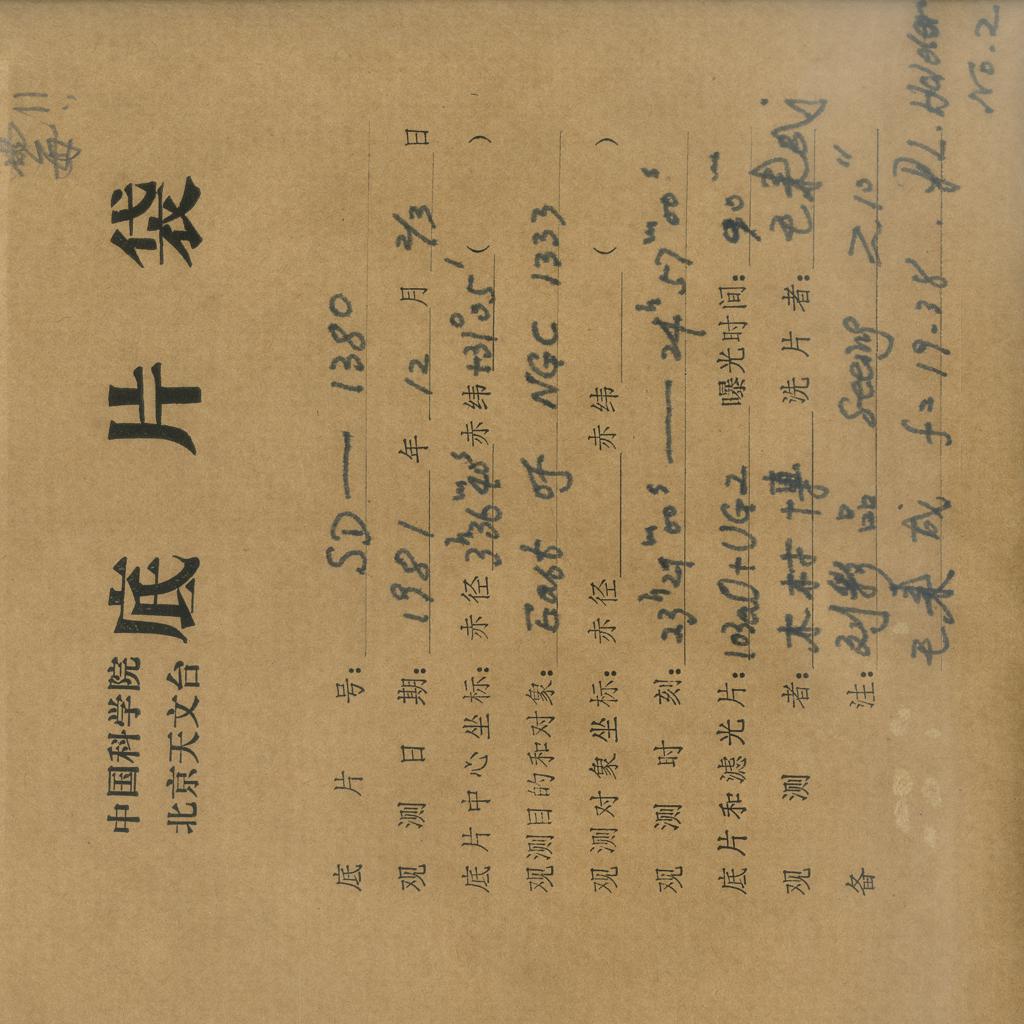 中国科学院
北京天文台
底片袋
底片号: SD— 1380
观测日期: 1981年12月2/3日
底片中心坐标: 赤径 3ʰ36ᵐ40ˢ 赤纬 +31°05′ ( )
观测目的和对象: East of NGC 1333
观测对象坐标: 赤径 赤纬 ( )
观测时刻: 23ʰ29ᵐ00ˢ — 24ʰ57ᵐ00ˢ
底片和滤光片: 103aO+UG2 曝光时间: 90ᵐ
观测者: 木村博 洗片者: 毛秉威
备注: 刘彩品 Seeing 10″
f=19.38. PL. Holder
No. 2